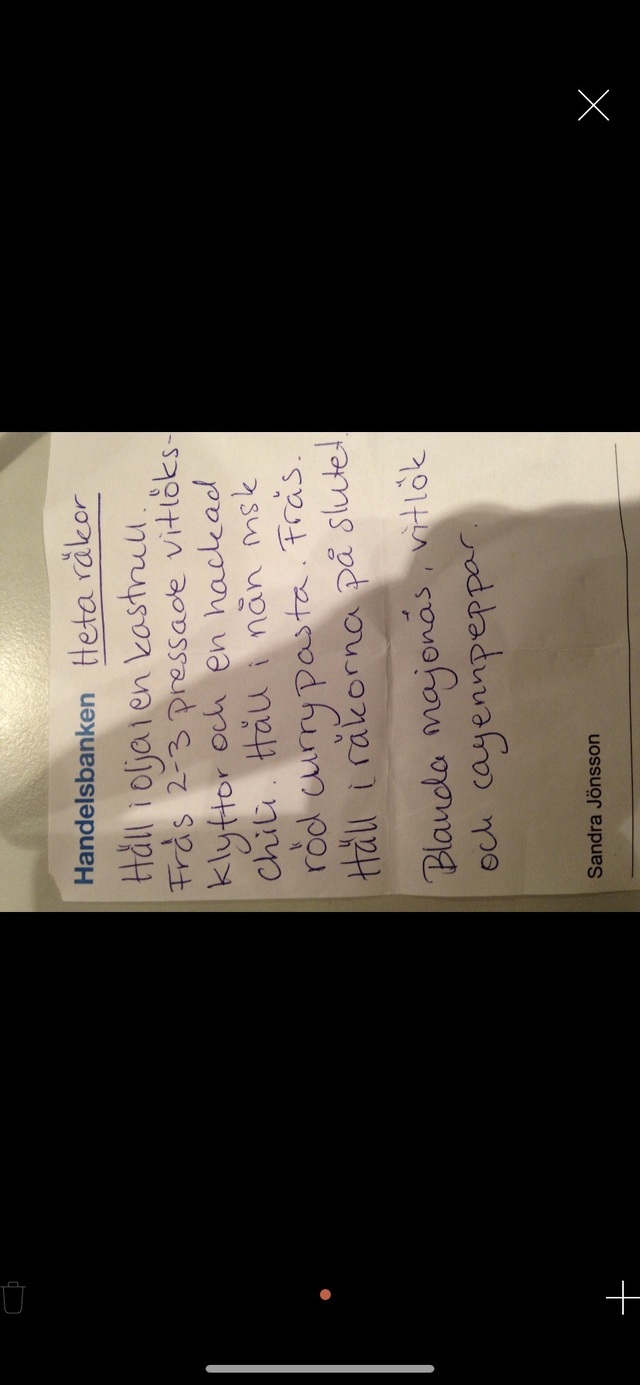 Handelsbanken Heta räkor
Häll i olja i en kastrull.
Fräs 2-3 pressade vitlöks-
klyftor och en hackad
chili. Häll i nån msk
röd curry pasta. Fräs.
Häll i räkorna på slutet.
Blanda majonäs, vitlök
och cayennpeppar.
Sandra Jönsson